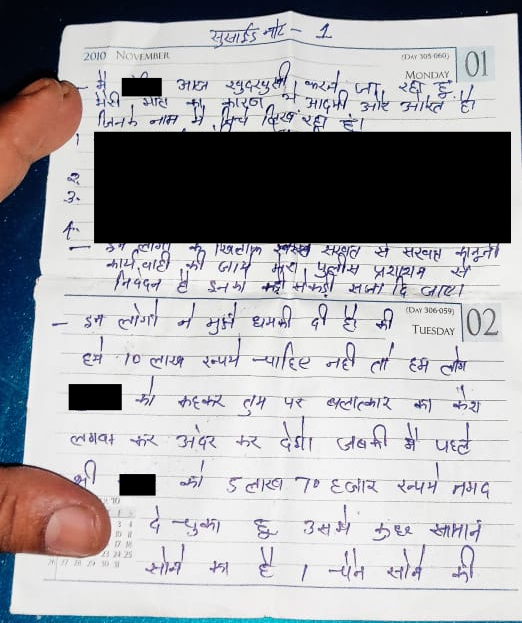 सुसाईड नोट - 1
2010 NOVEMBER (DAY 305-060) MONDAY 01
- मै आज खुदखुसी करने जा रहा हूं.
मेरी मौत का कारण ये आदमी और औरत है।
जिनके नाम मै निचे लिख रहा हूं।
1
2.
3.
4.
- इन लोगो के खिलाफ सख्त से सख्त कानूनी
कार्यवाही की जाये मेरा पुलीस प्रशाशन से
निवेदन है इनको कडी से कडी सजा दि जाए।
(DAY 306-059) TUESDAY 02
- इन लोगो ने मुझे धमकी दी है की
हमे 10 लाख रूपये चाहिए नही तो हम लोग
को कहकर तुम पर बलात्कार का केश
लगवा कर अंदर कर देगा जबकी मै पहले
भी को 5 लाख 70 हजार रूपये नगद
दे चुका हू उसमे कुछ सामान
सोने का है 1 चैन सोने की
3 4
10 11
17 18
23 24 25
26 27 28 29 30 31